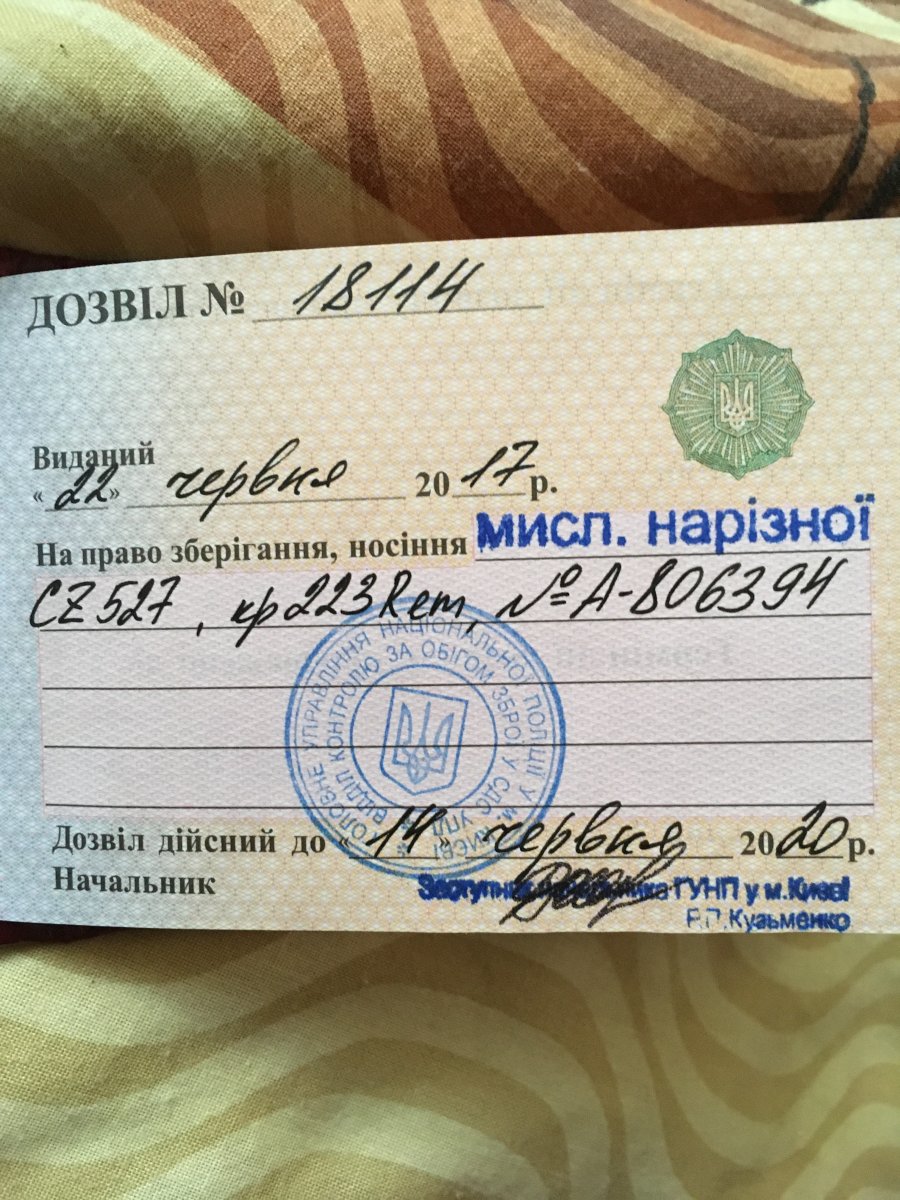 ДОЗВІЛ № 18114
Виданий
«22» червня 2017 р.
На право зберігання, носіння мисл. нарізної
CZ 527, кр 223 Rem, № А-806394
ГОЛОВНЕ УПРАВЛІННЯ НАЦІОНАЛЬНОЇ ПОЛІЦІЇ У М. КИЄВІ
ВІДДІЛ КОНТРОЛЮ ЗА ОБІГОМ ЗБРОЇ У СДС УПД
Дозвіл дійсний до «14» червня 2020 р.
Начальник Заступник начальника ГУНП у м.Києві
Кузьменко